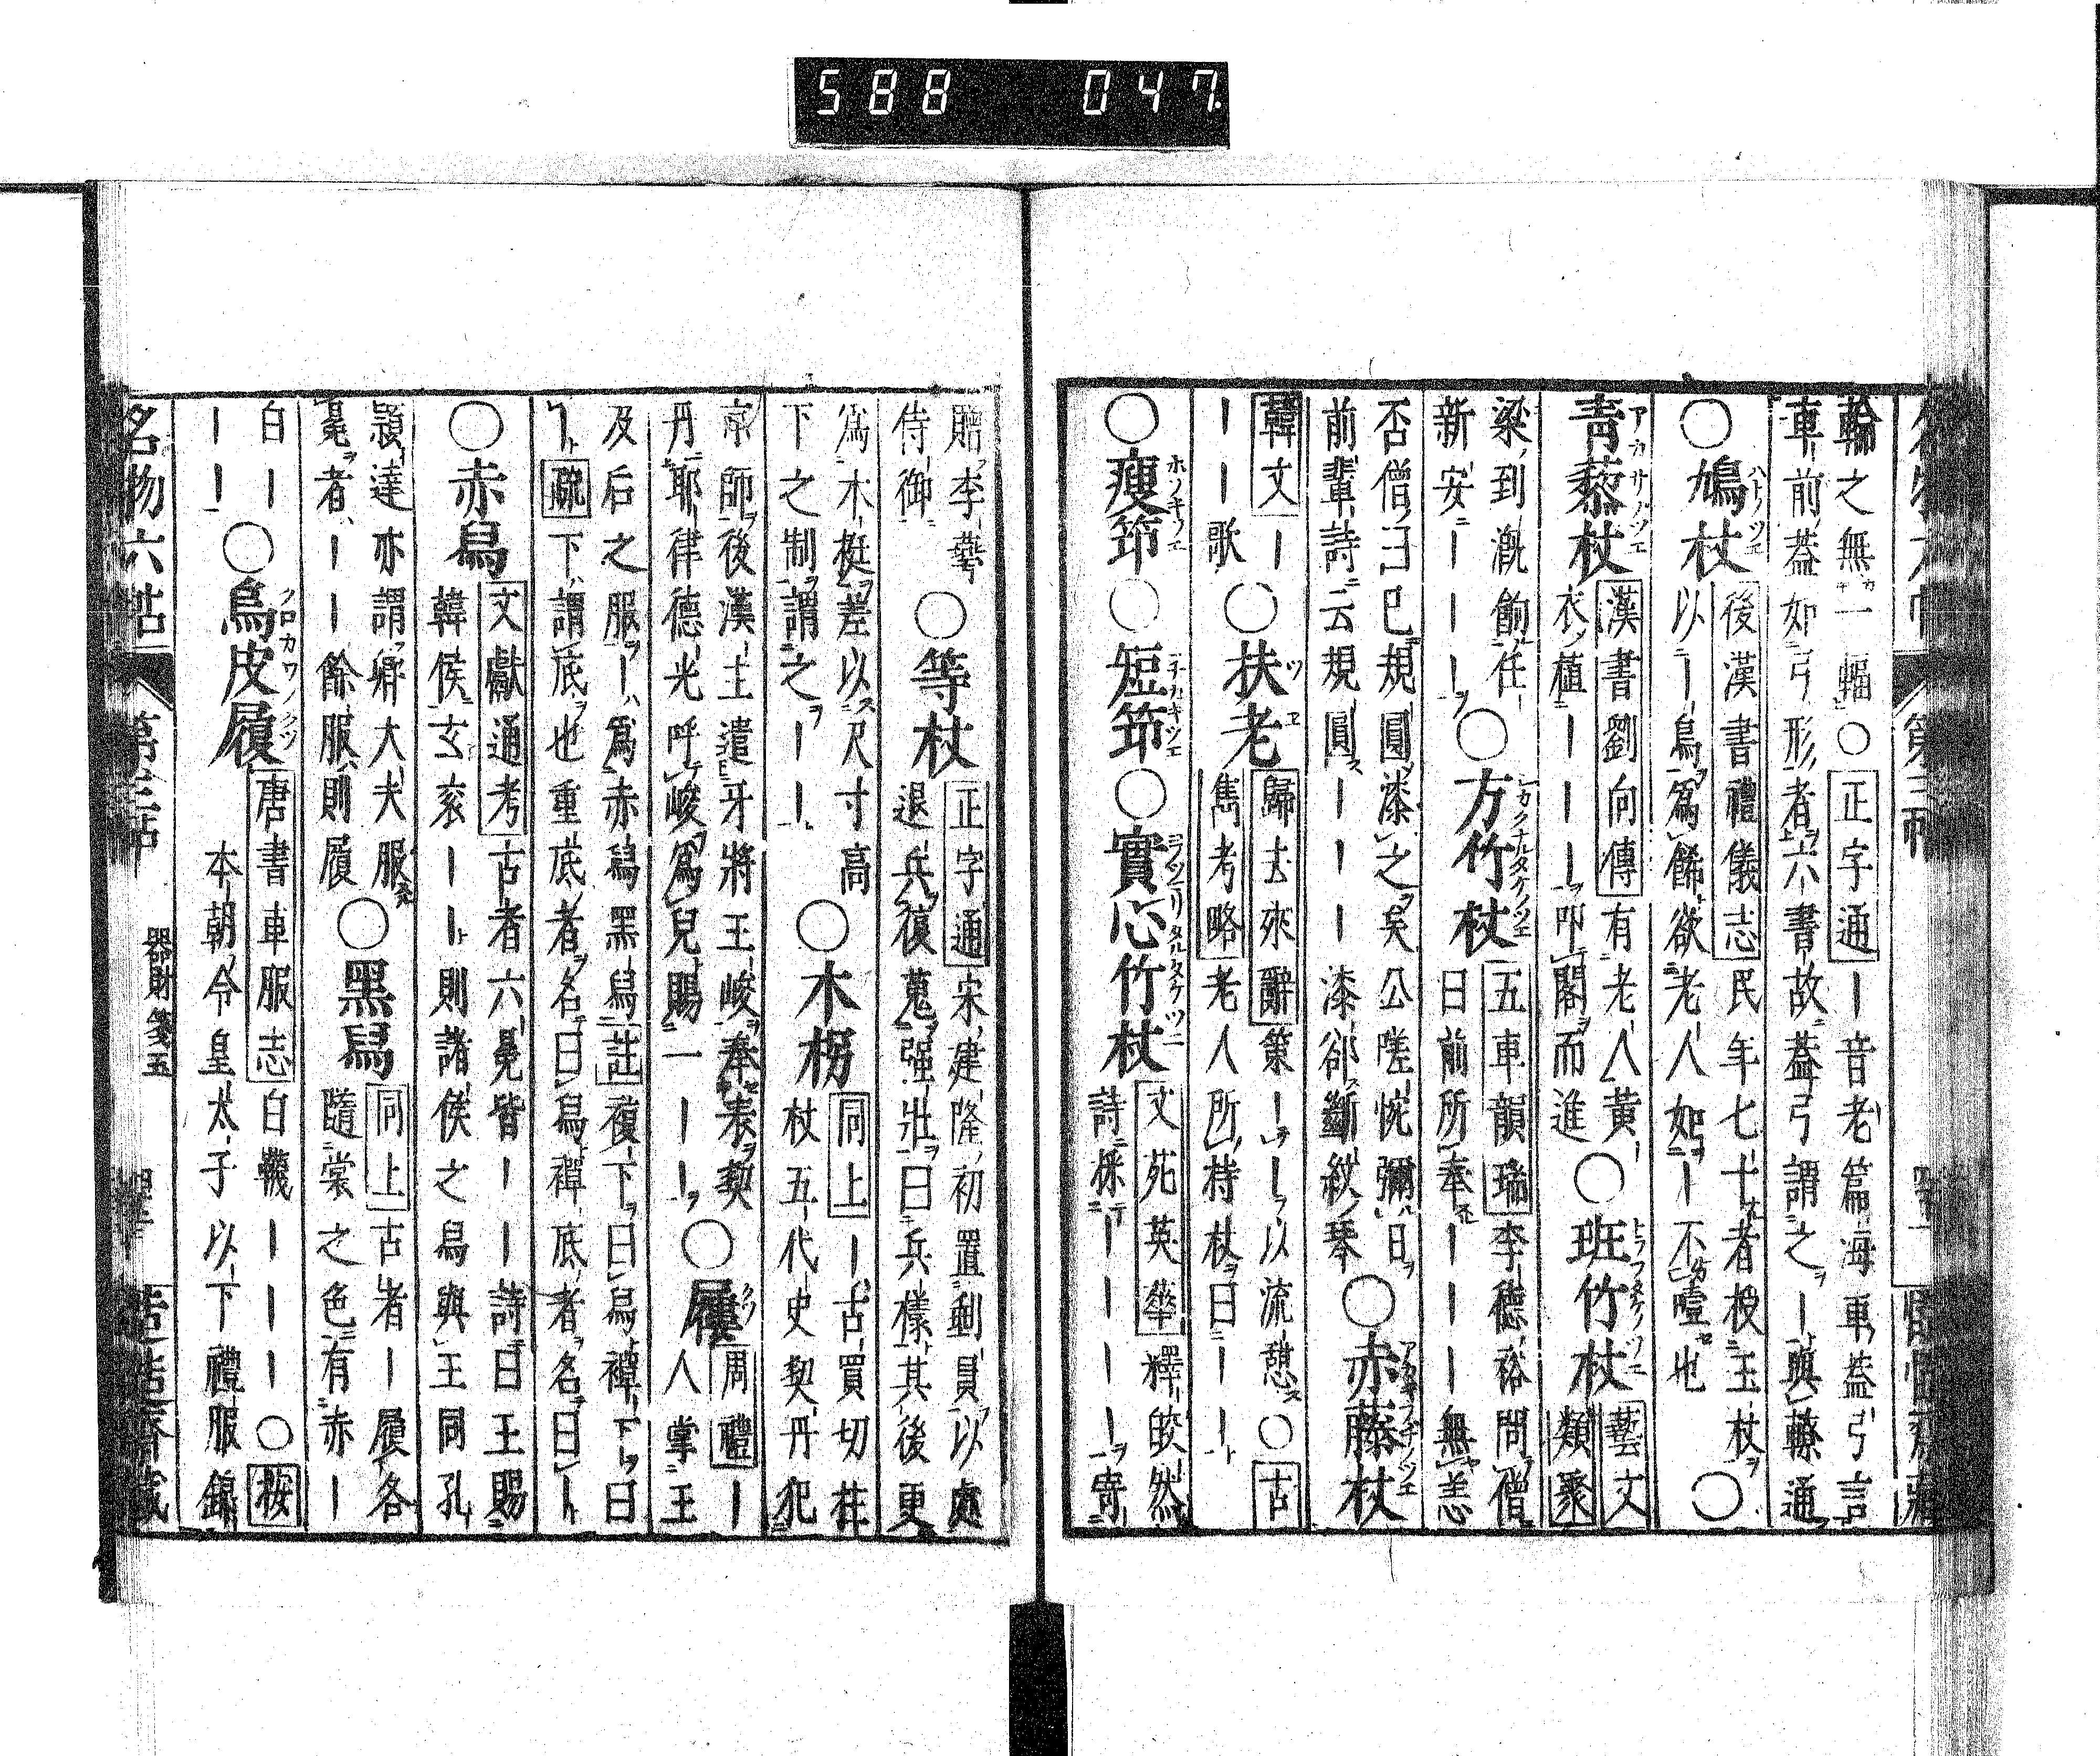 輪之無一輻○正字通｜音老篇海車蓋弓言
車前蓋如弓形者六書故蓋弓謂之｜與轑通
○鳩杖
後漢書禮儀志民年七十者授玉杖
以｜鳥爲餙欲老人如｜不噎也
○
青藜杖
漢書劉向傳有老人黃
衣植｜｜｜叩閣而進
○班竹杖
藝文
類聚
梁到漑餉任
新安｜｜｜
○方竹杖
五車韻瑞李德裕問僧
曰前所奉｜｜｜無恙
否僧曰已規圓漆之矣公嗟惋彌日
前輩詩云規圓｜｜｜漆卻斷紋琴
○赤藤杖
韓文｜
｜｜歌
○扶老
歸去來辭策｜｜以流憩○古
雋考略老人所持杖曰｜｜
○瘦筇○短筇○實心竹杖
文苑英華釋皎然
詩採｜｜｜｜寄
贈李蕚
侍御
○等杖
正字通宋建隆初置剩員以處
退兵復蒐强壯曰兵樣其後更
爲木梃差以尺寸高
下之制謂之｜｜
○木柺
同上｜古買切拄
杖五代史契丹犯
京師後漢主遣牙將王峻奉表契
丹耶律德光呼峻爲兒賜一｜｜
○屨
周禮｜
人掌王
及后之服｜爲赤舄黑舄註複下曰舄禪下曰
｜疏下謂底也重底者名曰舄禪底者名曰｜
○赤舄
文獻通考古者六冕皆｜｜詩曰王賜
韓侯玄衮｜｜則諸侯之舄與王同孔
穎達亦謂卿大夫服
冕者｜｜餘服則屨
○黑舄
同上古者｜屨各
隨裳之色有赤｜
白｜
｜｜
○烏皮履
唐書車服志白韈｜｜｜○按
本朝令皇太子以下禮服錦
名物六帖 第三帖 器財箋五
588 047